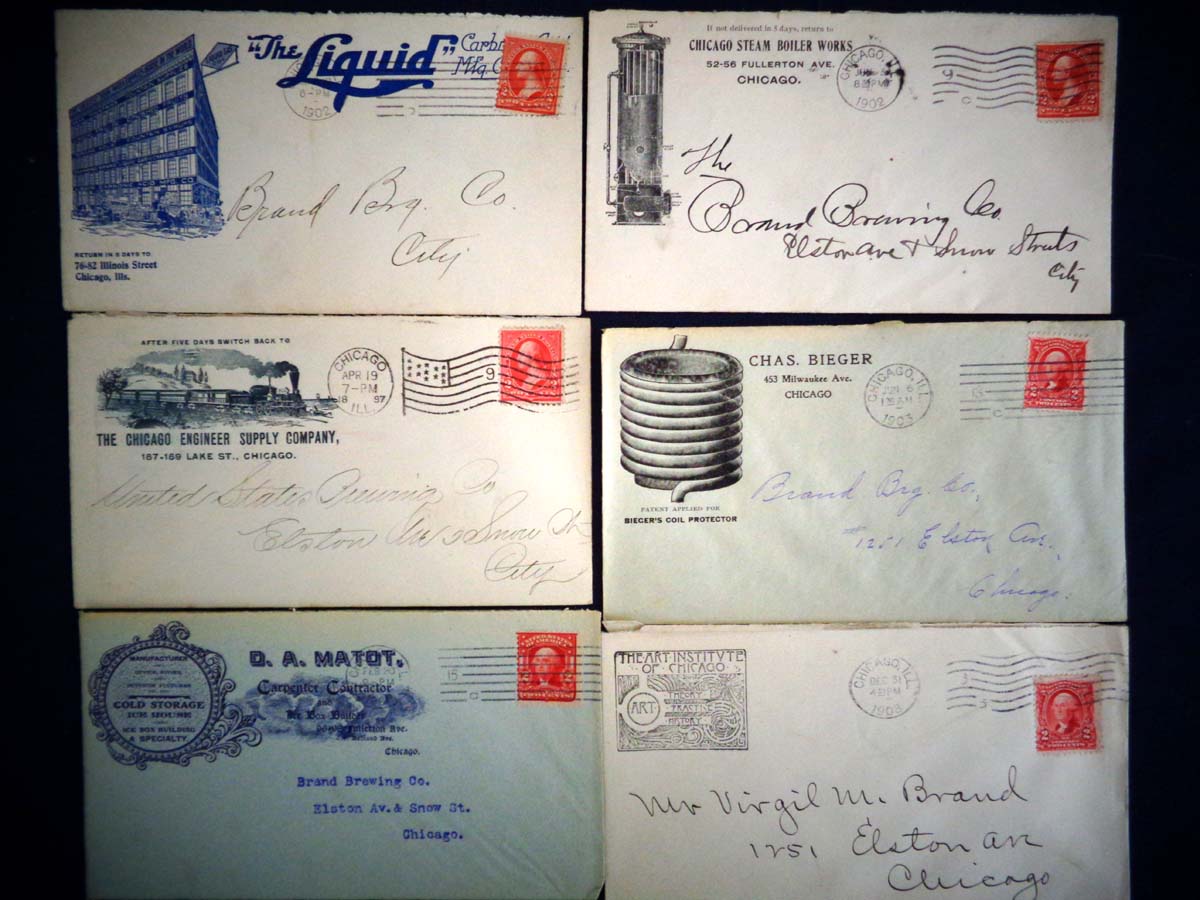 "The Liquid" Carbonic
Mfg. C
6-PM
1902
ACID MFG. CO.
RETURN IN 5 DAYS TO
76-82 Illinois Street
Chicago, Ills.
Brand Brg. Co.
City
If not delivered in 5 days, return to
CHICAGO STEAM BOILER WORKS
52-56 FULLERTON AVE.
CHICAGO.
CHICAGO, ILL.
1902
9
C
The
Brand Brewing Co.
Elston Ave & Snow Streets
City
AFTER FIVE DAYS SWITCH BACK TO
THE CHICAGO ENGINEER SUPPLY COMPANY,
167-169 LAKE ST., CHICAGO.
CHICAGO
APR 19
7-PM
18 97
ILL.
9
United States Brewing Co
Elston Ave & Snow St
City
CHAS. BIEGER
453 Milwaukee Ave.
CHICAGO
CHICAGO, ILL.
1903
C
PATENT APPLIED FOR
BIEGER'S COIL PROTECTOR
Brand Brg. Co.,
#1251 Elston Ave.
Chicago.
MANUFACTURER
COLD STORAGE
ICE HOUSE
AND
ICE BOX BUILDING
A SPECIALTY.
D. A. MATOT,
Carpenter Contractor
and
Ice Box Builder
Chicago.
15
C
Brand Brewing Co.
Elston Av. & Snow St.
Chicago.
THE ART INSTITUTE
OF CHICAGO
ART
THEORY
PRACTISE
HISTORY
CHICAGO, ILL.
DEC 31
4 PM
1903
3
Mr Virgil M. Brand
1251 Elston Av
Chicago